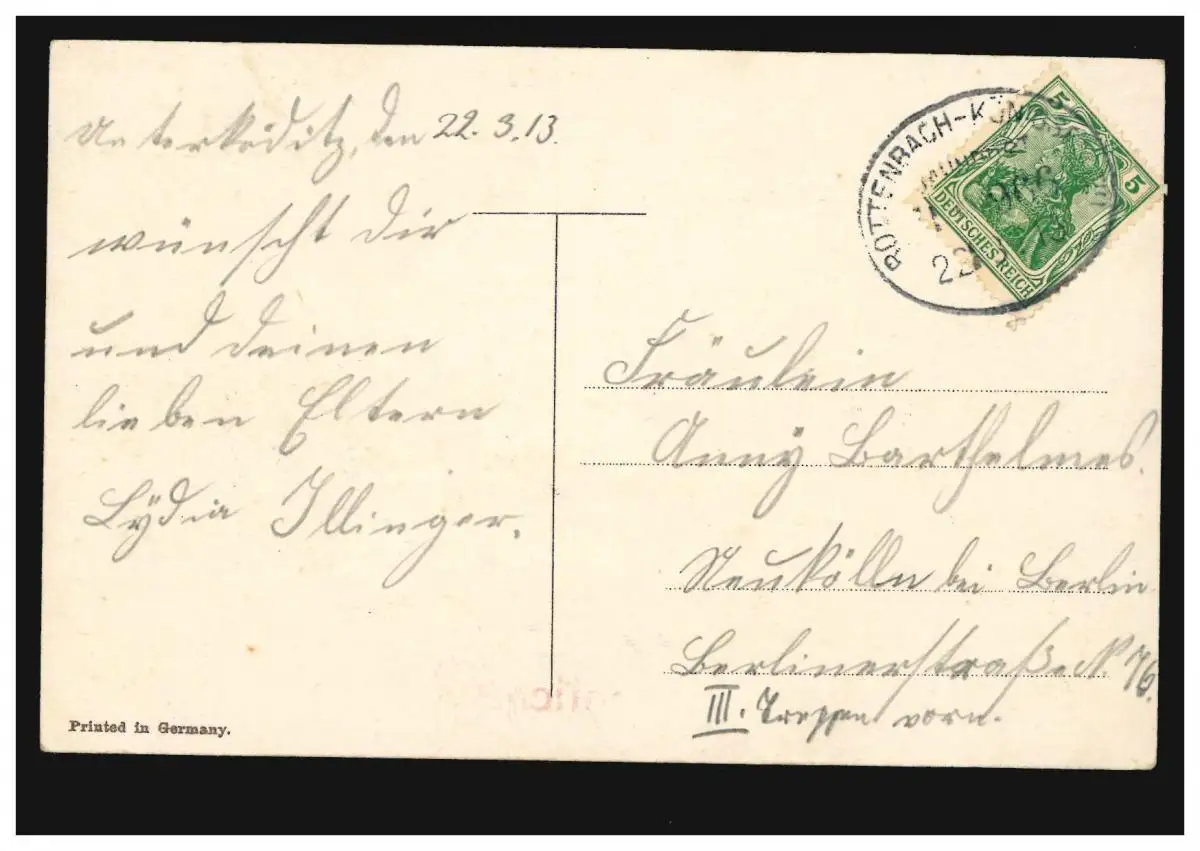 Unterköditz, den 22.3.13.
wünscht dir
und deinen
lieben Eltern
Lydia Illinger.
Printed in Germany.
ROTTENBACH-KÖNIGS
BAHNPOST
ZUG 986
22
5
5
DEUTSCHES REICH
Fräulein
Anny Barthelmes.
Neukölln bei Berlin
Berlinerstraße N 76.
III. Treppen vorn.